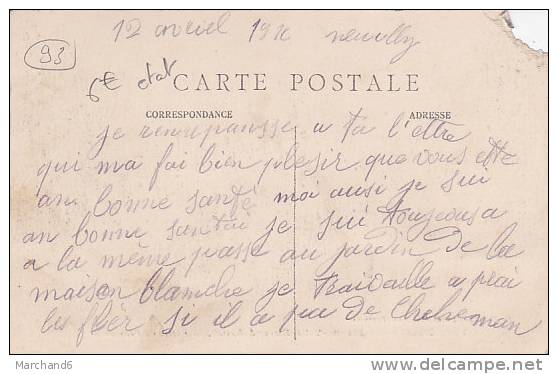 12 avriel 191 neuilly
93
6€ etat
CARTE POSTALE
CORRESPONDANCE
ADRESSE
je renrepansse a ta l'ettre
qui ma fai bien plesir que vous ette
an bonne santé moi ausi je sui
an bonne santai je sui toujous a
a la même passe au jardin de la
maison blanche je traivaille a prai
les fler si il a pa de
Marchand6
www.delcampe.net